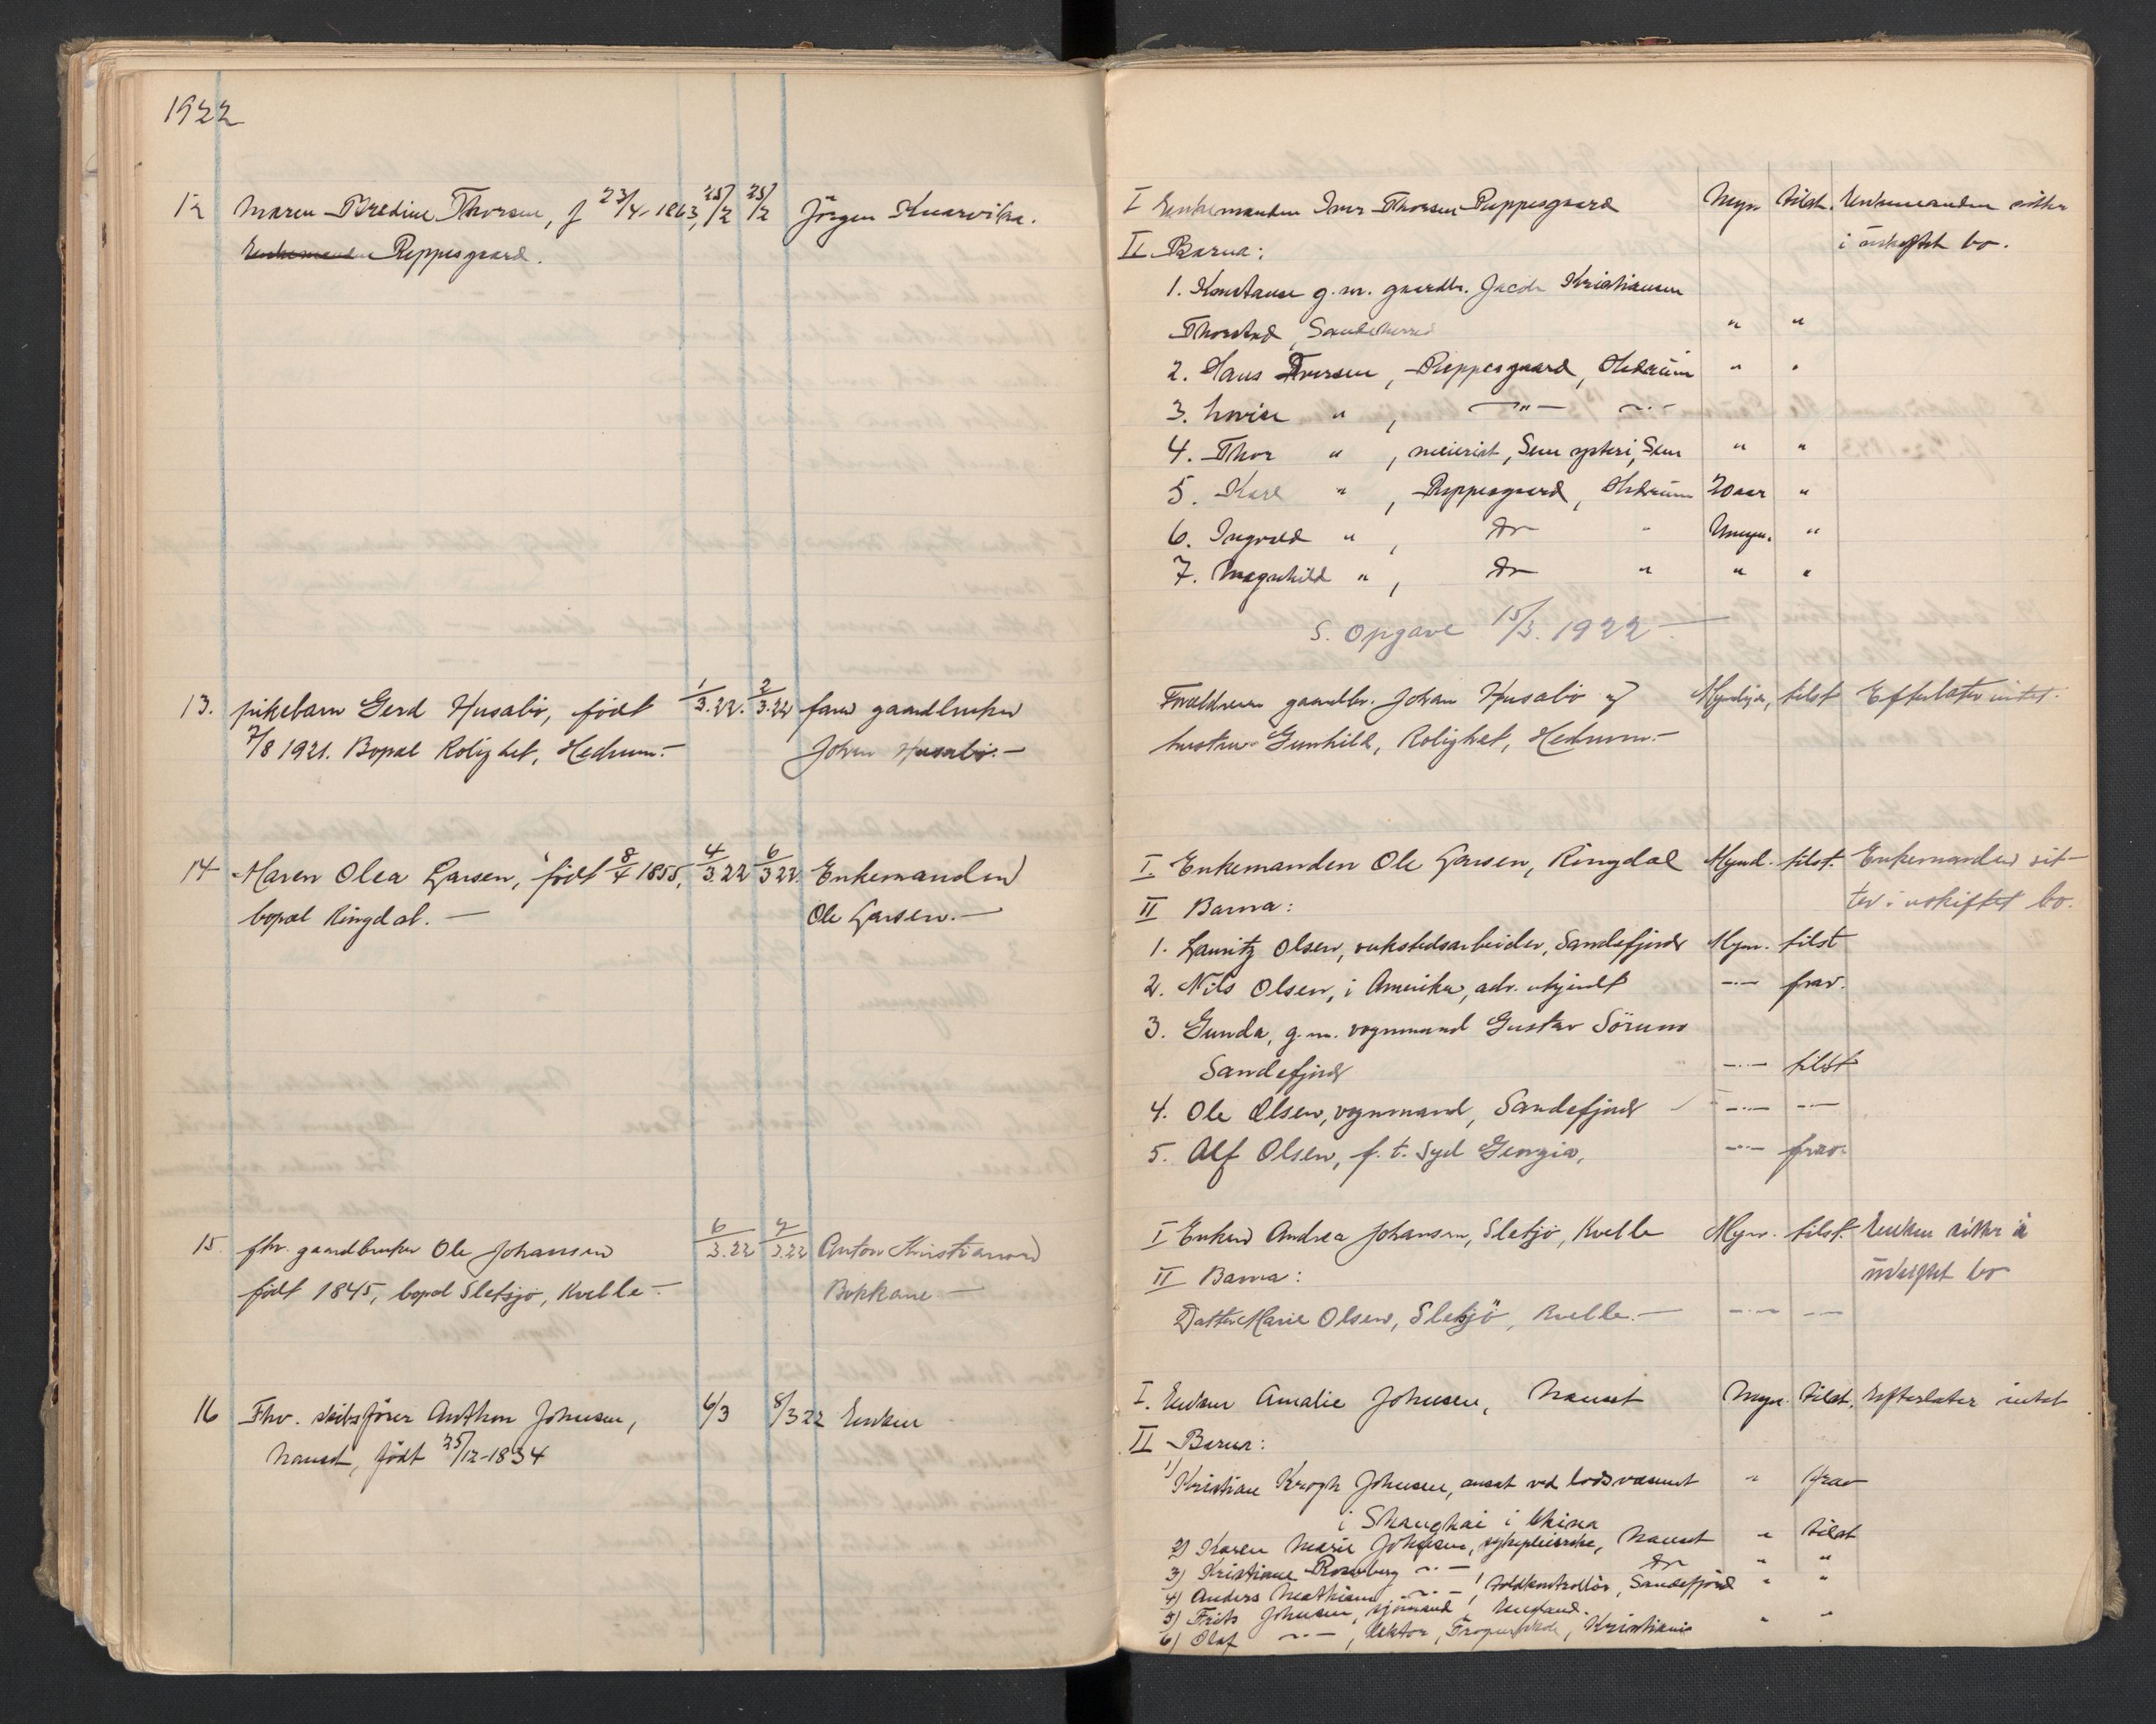 1922
12 Maren Bredine Thorsen, f 23/4-1863, 25/2 25/2 Jörgen Knarvika.
Enkemanden Reppesgaard.
13. pikebarn Gerd Husabö, født 1/3.22. 2/3.22 faren gaardbruker
7/8 1921. Bopæl Rolighet, Hedrum.- Johan Husabö.-
14 Maren Olea Larsen, født 8/4 1855, 4/3.22 6/3.22. Enkemanden
bopæl Ringdal.- Ole Larsen.-
15. fhv. gaardbruker Ole Johansen 6/3.22 7/3.22 Anton Kristiansen
født 1845, bopæl Sletsjö, Kvelle.- Bokkane -
16 Fhv. skibsfører Anthon Johnsen, 6/3 8/3 22 Enken
Nanset, født 25/12-1834
I Enkemanden Iver Thorsen Reppesgaard Myn. tilst. Enkemanden sitter
II Barna: i uskiftet bo.
1. Konstanse g.m. gaardbr. Jacob Kristiansen
Thorstad, Sandeherred " "
2. Hans Iversen, Reppesgaard, Hedrum " "
3. Lovise " , -"- -"-
4. Thor " , meierist, Sem ysteri, Sem " "
5. Karl " , Reppesgaard, Hedrum 20 aar "
6. Ingvald " , do " Umyn. "
7. Magnhild " , do " " "
S. Opgave 15/3. 1922-
Forældrene gaardbr. Johan Husabö og Myndige, tilst Efterlater intet.
hustru Gunhild, Rolighet, Hedrum.-
I. Enkemanden Ole Larsen, Ringdal Mynd. tilst. Enkemanden sit-
II Barna: ter i uskiftet bo.
1. Lauritz Olsen, verkstedsarbeider, Sandefjord Myn. tilst
2. Nils Olsen, i Amerika, adr. ukjendt -"- frav.
3. Gunda, g.m. vognmand Gustav Sörum
Sandefjord -"- tilst
4. Ole Olsen, vognmand, Sandefjord -"- -"-
5. Alf Olsen, f. t. Syd Georgia, -"- frav.
I Enken Andrea Johansen, Sletsjö, Kvelle Myn. tilst. Enken sitter i
II Barna: uskiftet bo
Datter Marie Olsen, Sletsjö, Kvelle.- -"- -"-
I. Enken Amalie Johnsen, Nanset Myn. tilst. Efterlater intet
II Barna:
1) Kristian Krogh Johnsen, ansat ved lodsvæsenet " frav
i Shanghai i China
2) Karen Marie Johnsen, sykepleierske, Nanset " tilst
3) Kristiane Rosenberg -"- do " "
4) Anders Mathias -"- , toldkontrollör, Sandefjord " "
5) Frits Johnsen, sjömand, England.
6) Olaf -"- , lektor, , Kristiania " "